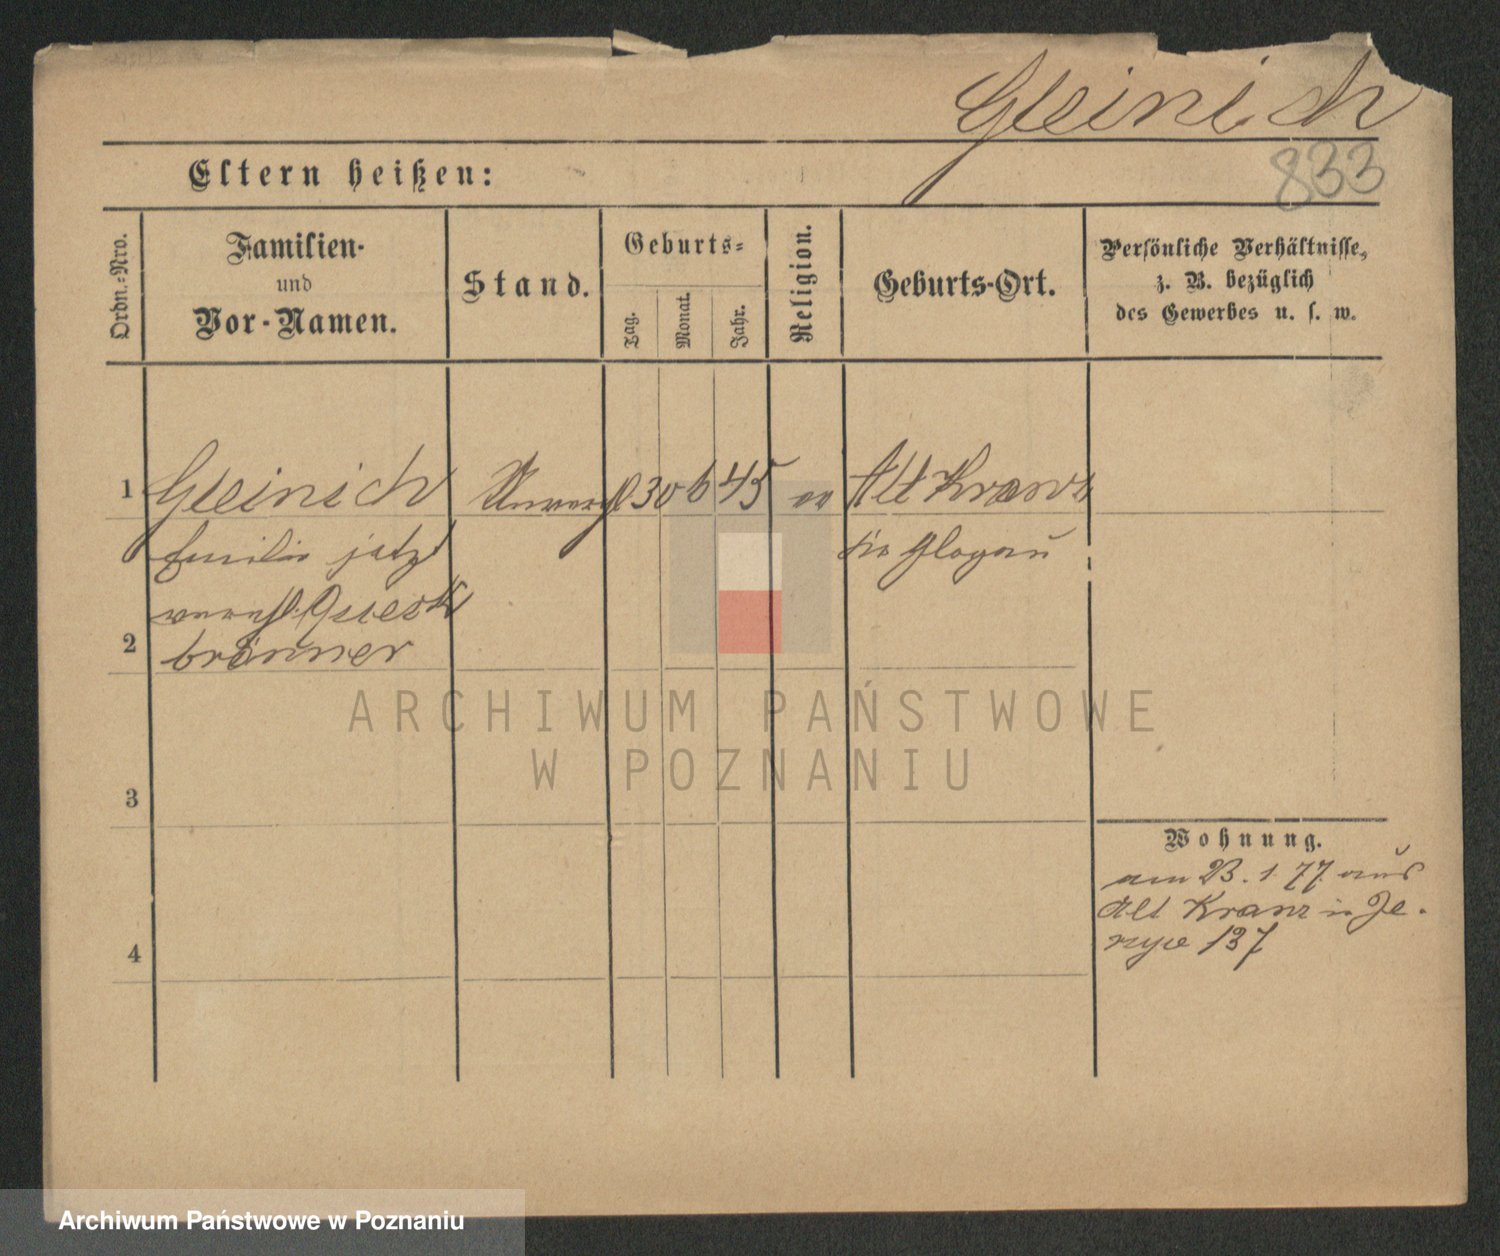 Gleinich
833
Eltern heißen:
Ordn.-Nro.
Familien-
und
Vor-Namen.
Stand.
Geburts-
Tag.
Monat.
Jahr.
Religion.
Geburts-Ort.
Persönliche Verhältnisse,
z. B. bezüglich
des Gewerbes u. s. w.
1
Gleinich Unverehl 30 6 45 ev Alt Kranz
Emilie jetzt
Kr Glogau
verehl.
2
brönner
3
Wohnung.
am 23. 1 77 aus
Alt Kranz in Je-
rzyce 137
4
ARCHIWUM PAŃSTWOWE
W POZNANIU
Archiwum Państwowe w Poznaniu